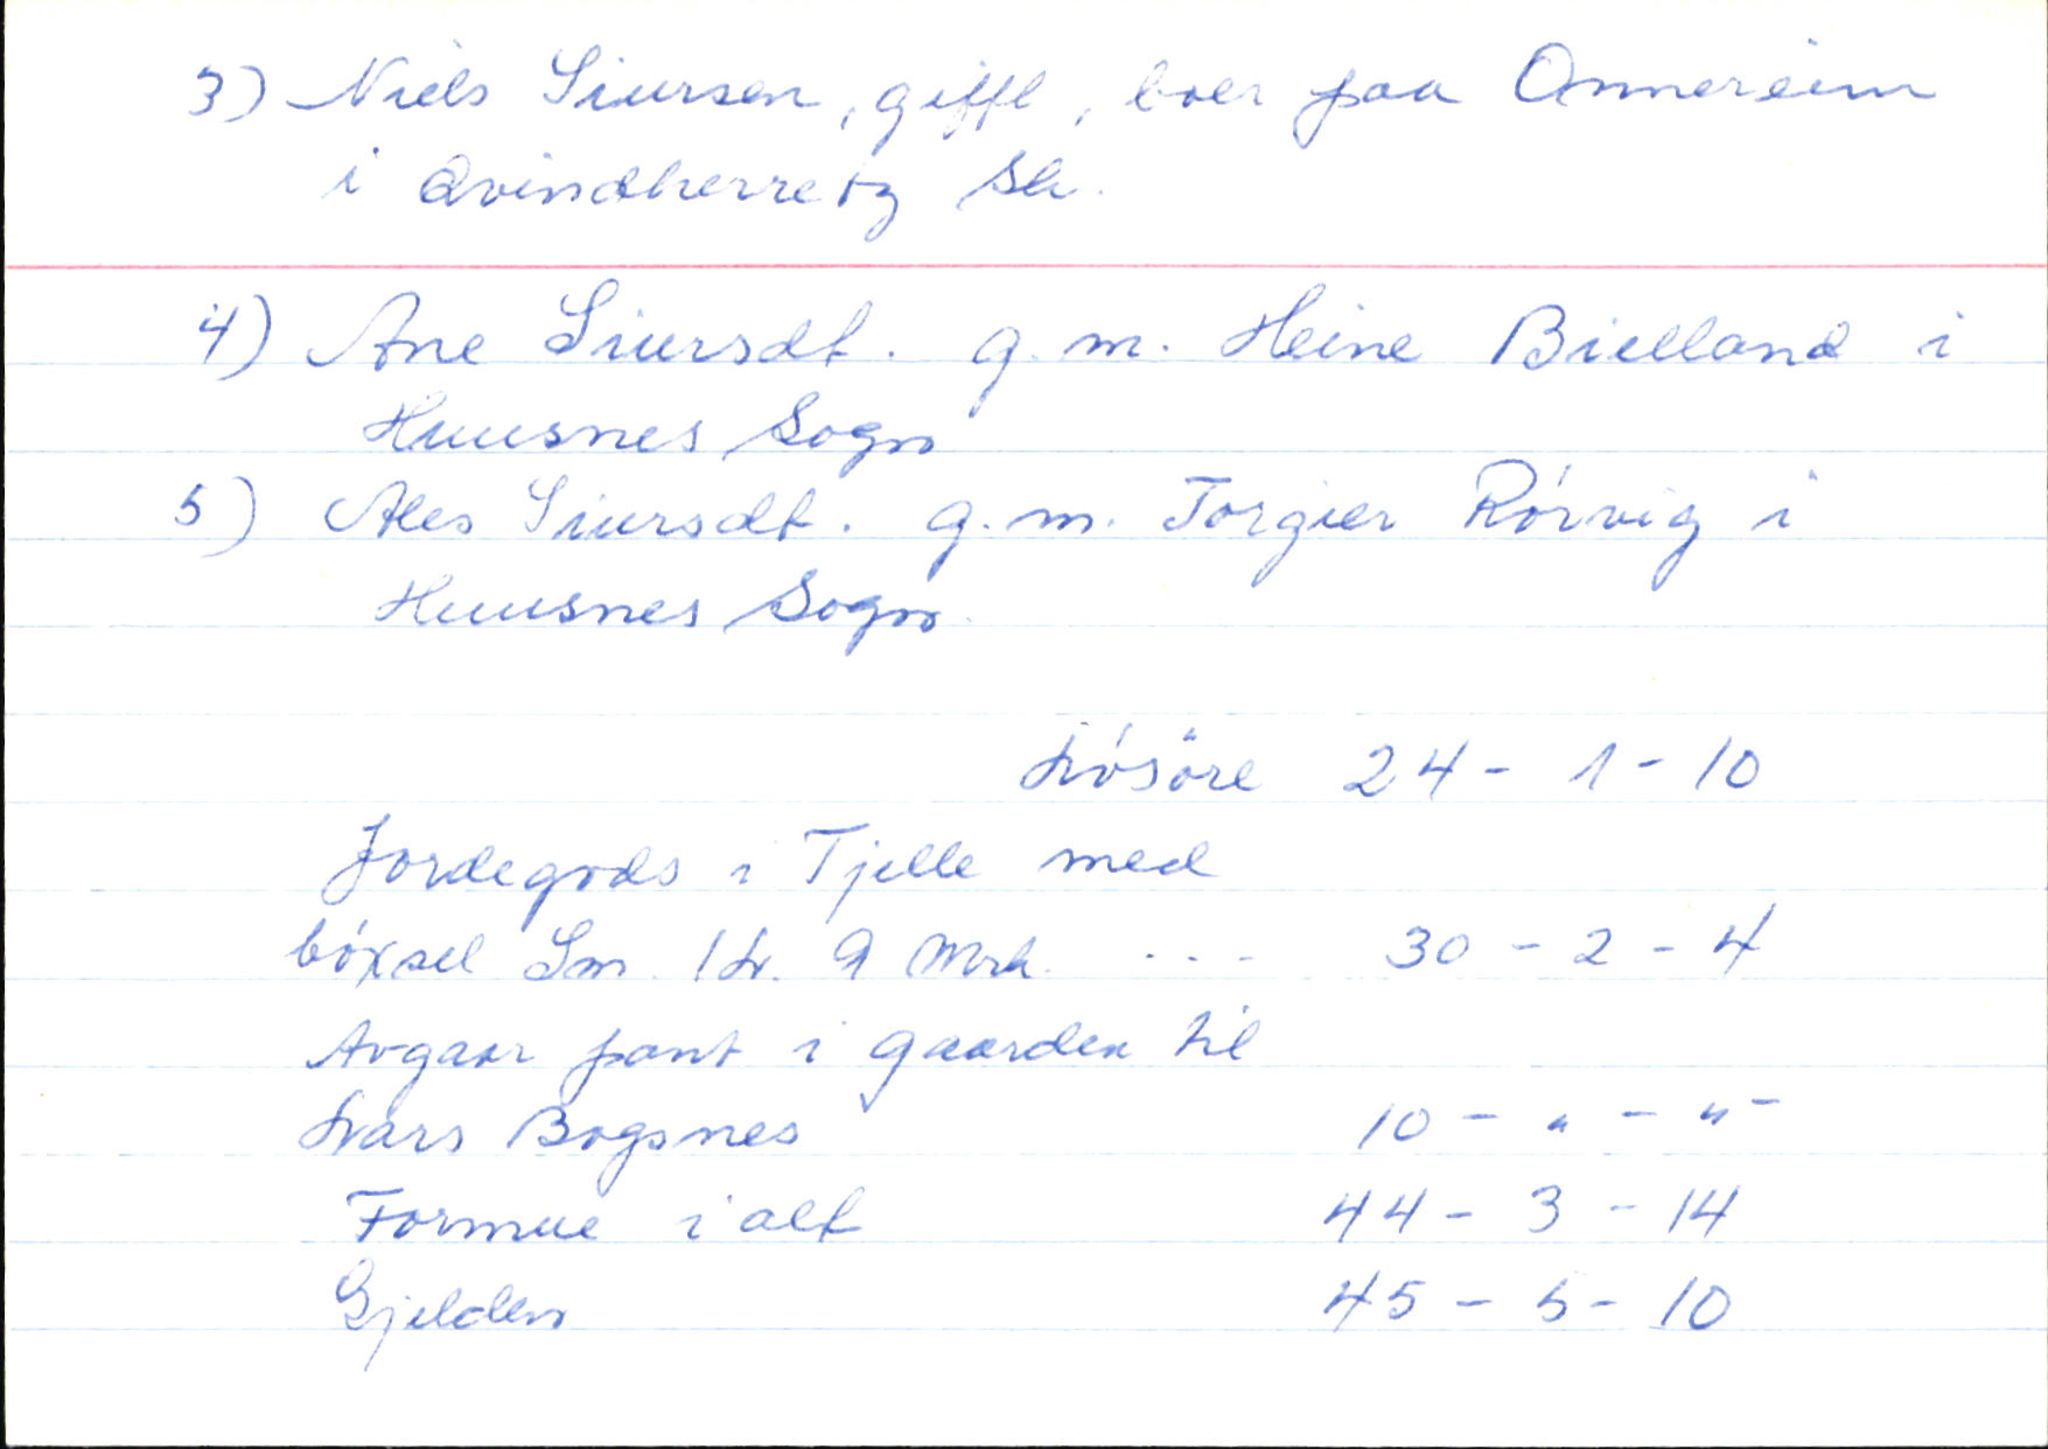 3) Niels Siursen, gifft, boer paa Onnereim
i Qvindherretz Sk.
4) Ane Siursdt. g. m. Heine Bielland i
Huusnes Sogn
5) Ales Siursdt. g. m. Torgier Rórvig i
Huusnes Sogn.
Lösöre 24 - 1 - 10
Jordegods i Tjelle med
bóxsel Sm. 1 L. 9 Mrk. ... 30 - 2 - 4
Avgaar pant i gaarden til
Lars Bogsnes 10 - " - " -
Formue i alt 44 - 3 - 14
Gjelden 45 - 5 - 10